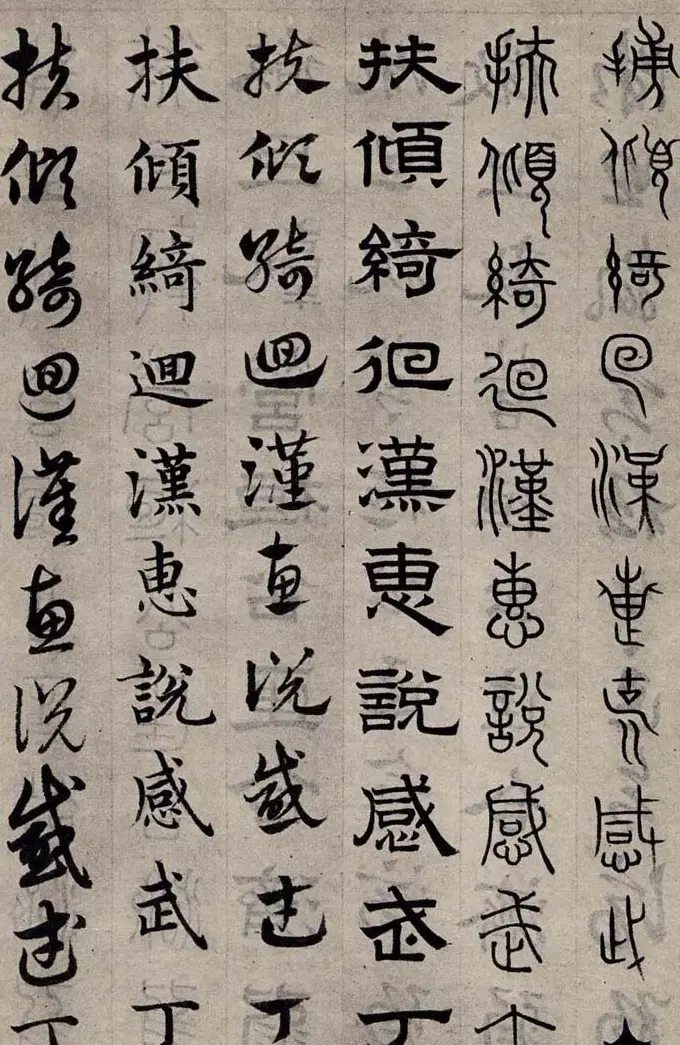 扶傾綺回漢惠說感武丁
扶傾綺迴漢惠說感武丁
扶傾綺徊漢惠說感武丁
扶傾綺迴漢惠說感武丁
扶傾綺迴漢惠說感武丁
扶傾綺迴漢惠說感武丁